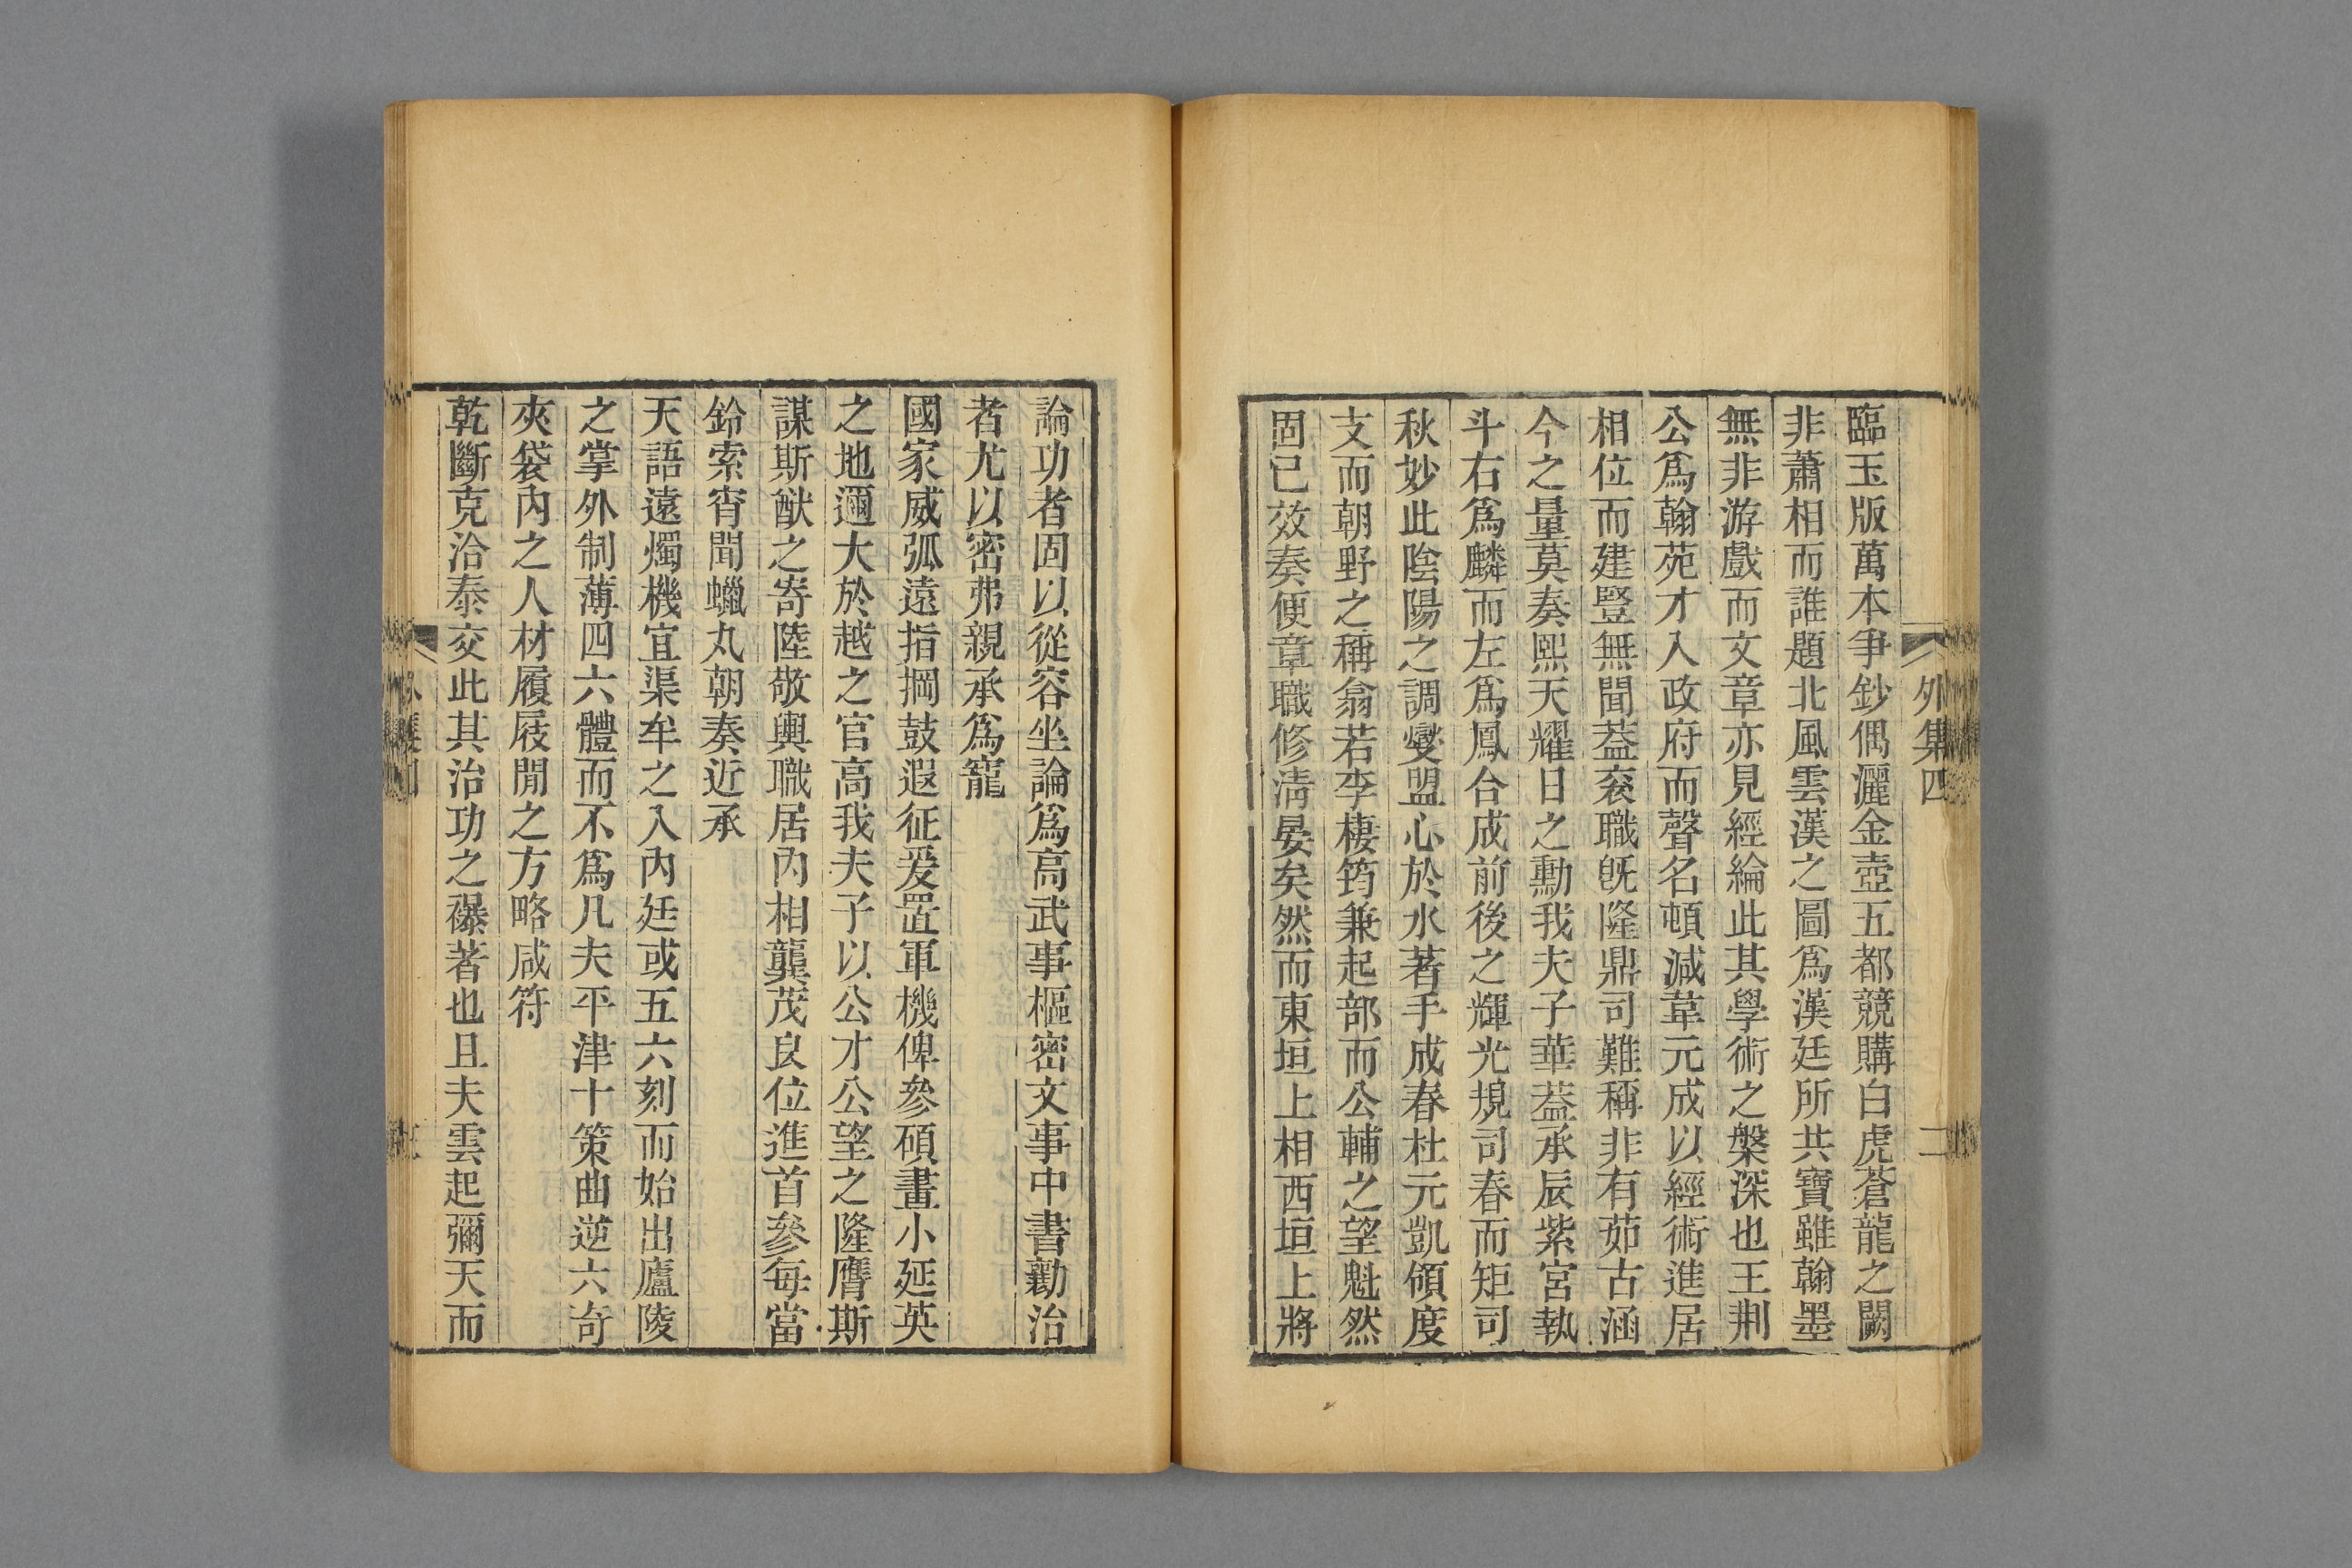 外集四
二
臨玉版萬本爭鈔偶灑金壺五都競購白虎蒼龍之闕
非蕭相而誰題北風雲漢之圖爲漢廷所共寶雖翰墨
無非游戲而文章亦見經綸此其學術之槃深也王荆
公爲翰苑才入政府而聲名頓減韋元成以經術進居
相位而建豎無聞蓋袞職旣隆鼎司難稱非有茹古涵
今之量莫奏熙天耀日之勳我夫子華蓋承辰紫宮執
斗右爲麟而左爲鳳合成前後之輝光規司春而矩司
秋妙此陰陽之調燮盟心於水著手成春杜元凱傾度
支而朝野之稱翁若李棲筠兼起部而公輔之望魁然
固已效奏便章職修淸晏矣然而東垣上相西垣上將
論功者固以從容坐論爲高武事樞密文事中書勷治
者尤以密弗親承爲寵
國家威弧遠指掆鼓遐征爰置軍機俾參碩畫小延英
之地邇大於越之官高我夫子以公才公望之隆膺斯
謀斯猷之寄陸敬輿職居內相龔茂良位進首參每當
鈴索宵聞蠟丸朝奏近承
天語遠燭機宜渠牟之入內廷或五六刻而始出廬陵
之掌外制薄四六體而不爲凡夫平津十策曲逆六奇
夾袋內之人材履屐閒之方略咸符
乾斷克洽泰交此其治功之襮著也且夫雲起彌天而